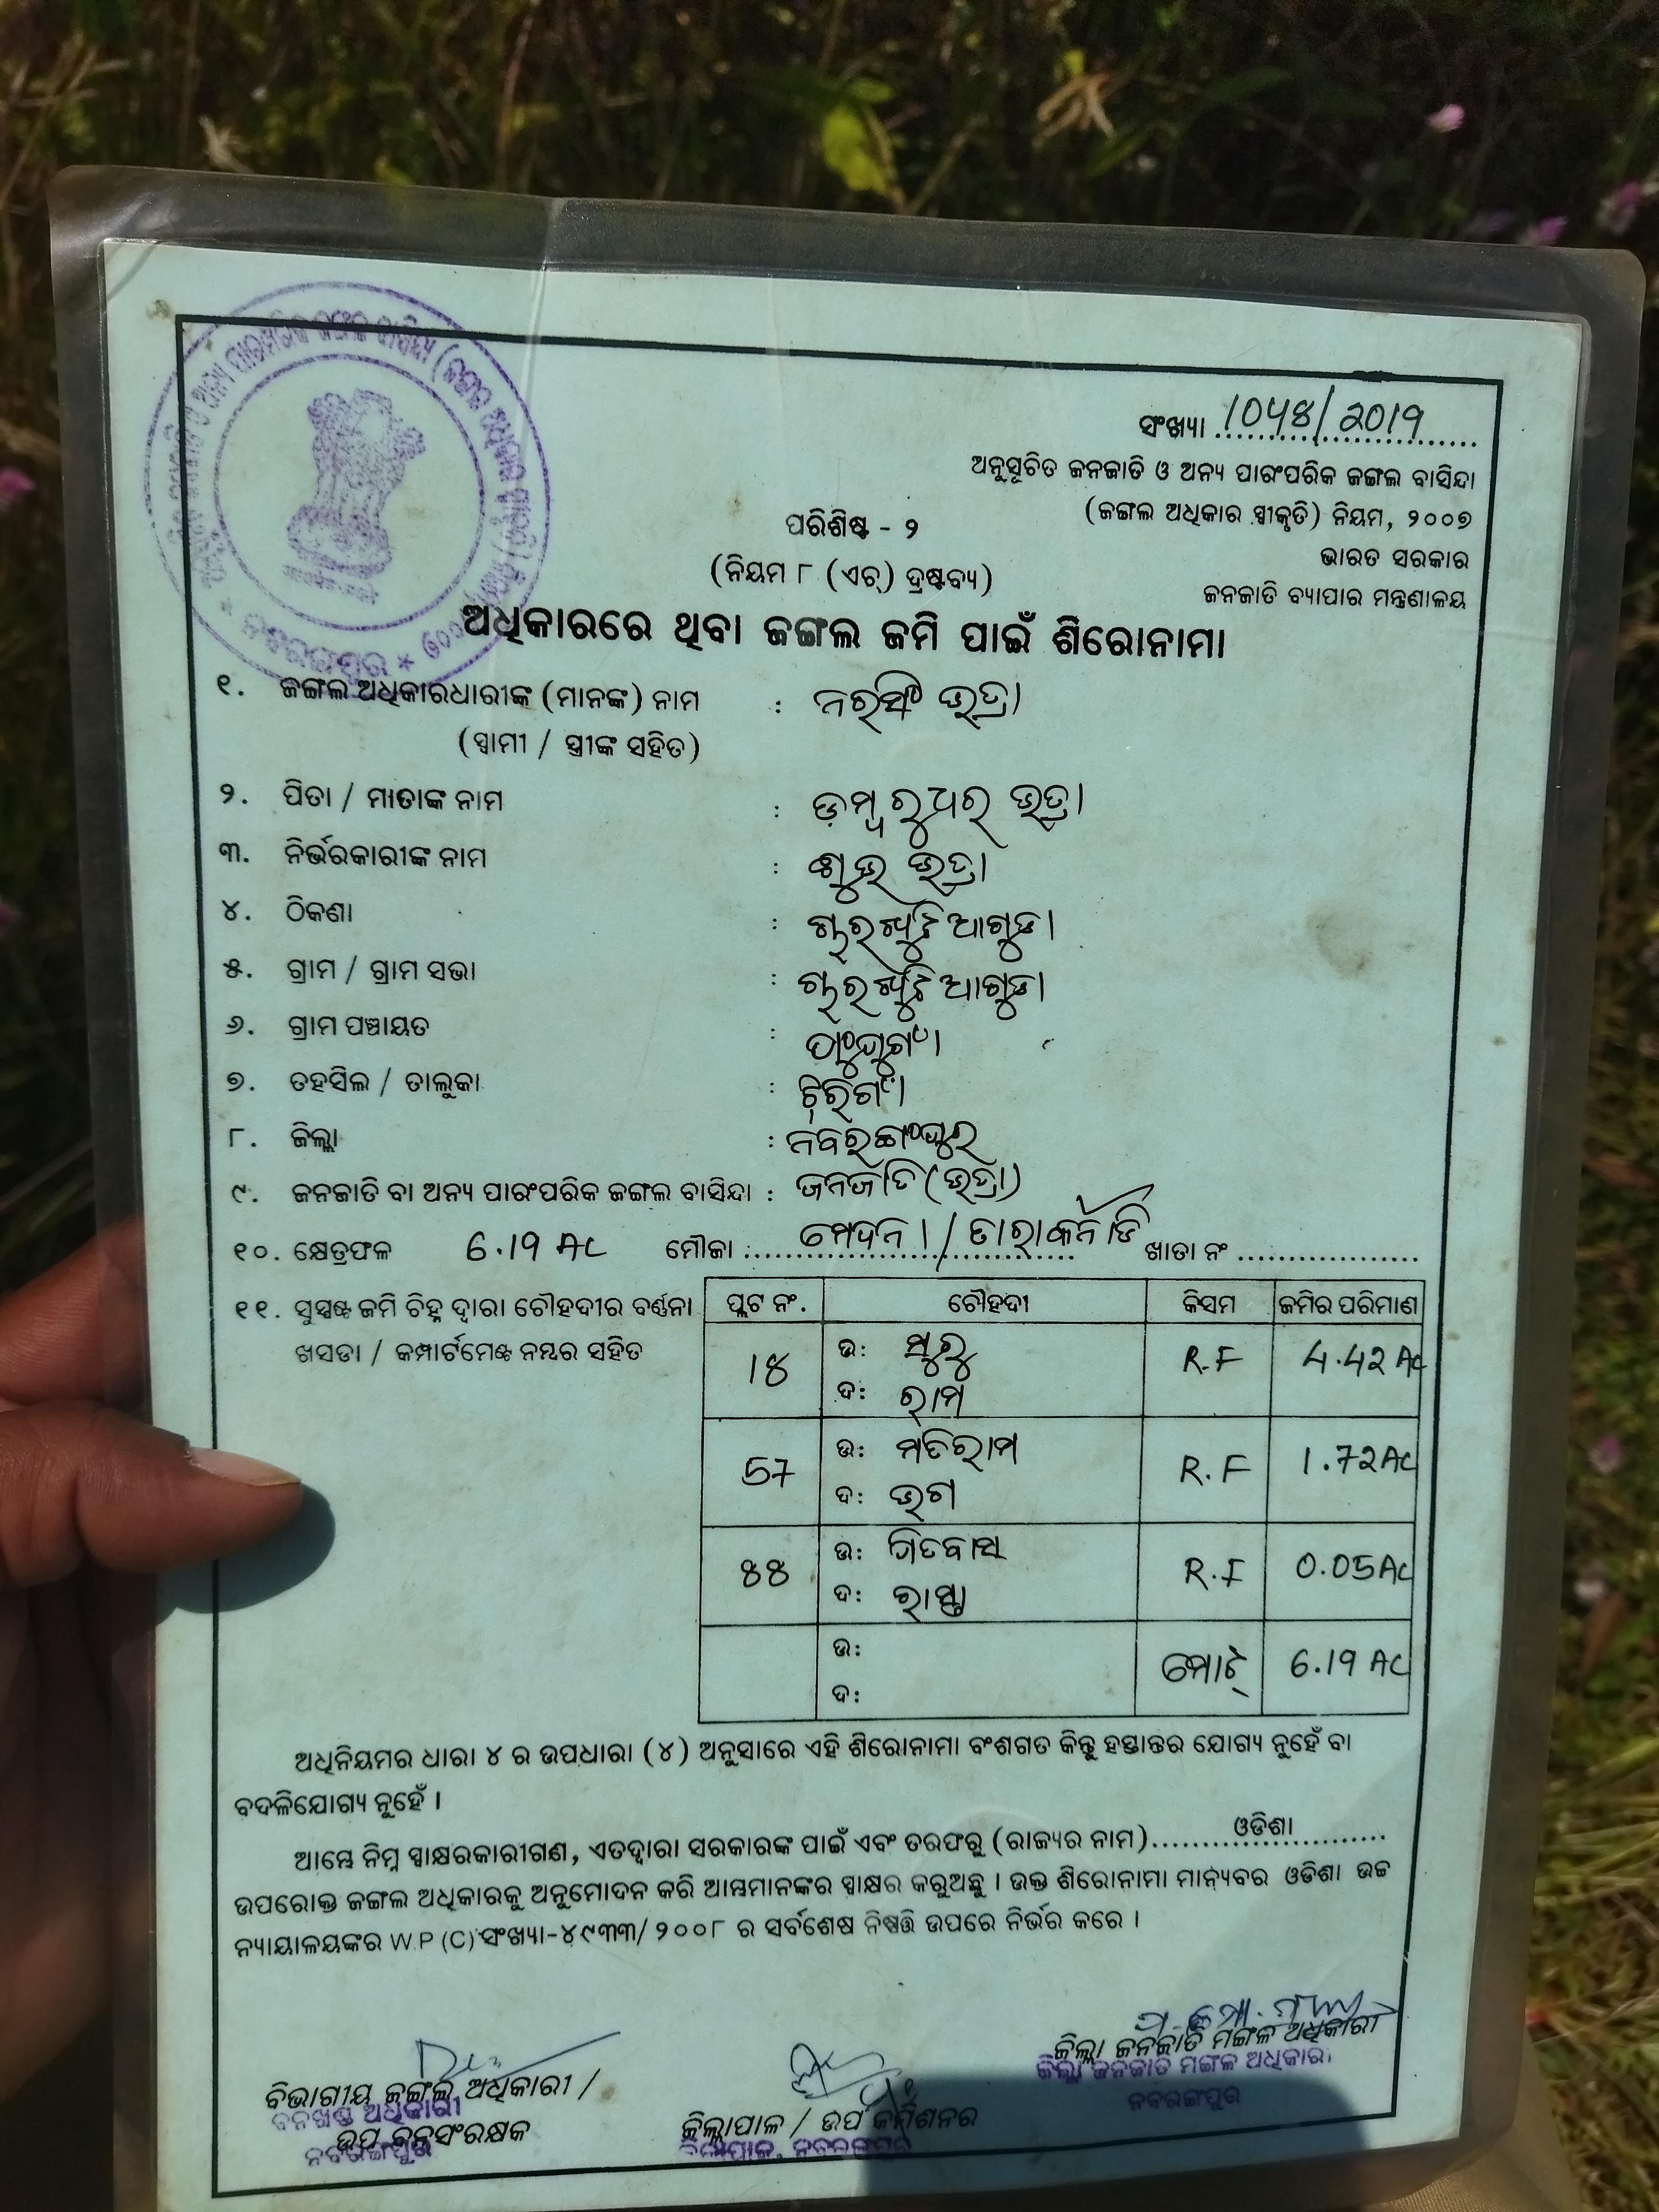 ସଂଖ୍ୟା
ଅନୁସୂଚିତ ଜନଜାତି ଓ ଅନ୍ୟ ପାରଂପରିକ ଜଙ୍ଗଲ ବାସିନ୍ଦା
(ଜଙ୍ଗଲ ଅଧିକାର ସ୍ୱୀକୃତି) ନିୟମ, ୨୦୦୭
ଭାରତ ସରକାର
ଜନଜାତି ବ୍ୟାପାର ମନ୍ତ୍ରଣାଳୟ
ପରିଶିଷ୍ଟ - ୨
(ନିୟମ ୮ (ଏଚ୍) ଦ୍ରଷ୍ଟବ୍ୟ)
ଅଧିକାରରେ ଥିବା ଜଙ୍ଗଲ ଜମି ପାଇଁ ଶିରୋନାମା
୧. ଜଙ୍ଗଲ ଅଧିକାରଧାରୀଙ୍କ (ମାନଙ୍କ) ନାମ :
(ସ୍ୱାମୀ / ସ୍ତ୍ରୀଙ୍କ ସହିତ)
୨. ପିତା / ମାତାଙ୍କ ନାମ : ଡମ୍ବରୁଧର୍ ଭତ୍ରା
୩. ନିର୍ଭରକାରୀଙ୍କ ନାମ : ଶୁଭ ଭତ୍ରା
୪. ଠିକଣା :
୫. ଗ୍ରାମ / ଗ୍ରାମ ସଭା :
୬. ଗ୍ରାମ ପଞ୍ଚାୟତ :
୭. ତହସିଲ / ତାଲୁକା :
୮. ଜିଲ୍ଲା :
୯. ଜନଜାତି ବା ଅନ୍ୟ ପାରଂପରିକ ଜଙ୍ଗଲ ବାସିନ୍ଦା : ଜନଜାତି (ଭତ୍ରା)
୧୦. କ୍ଷେତ୍ରଫଳ 6.19 AC ମୌଜା ମେଦନା / ଖାତା ନଂ
୧୧. ସୁସ୍ପଷ୍ଟ ଜମି ଚିହ୍ନ ଦ୍ୱାରା ଚୌହଦୀର ବର୍ଣ୍ଣନା
ଖସଡା / କମ୍ପାର୍ଟମେଣ୍ଟ ନମ୍ବର ସହିତ
ପ୍ଲଟ ନଂ. ଚୌହଦୀ କିସମ ଜମିର ପରିମାଣ
ଉ: R.F 4.42 AC
ଦ: ରାମ
57 ଉ: ମତିରାମ R.F 1.72 AC
ଦ: ଭଗ
ଉ: R.F 0.05 AC
ଦ: ରାସ୍ତା
ଉ: ମୋଟ୍ 6.19 AC
ଦ:
ଅଧିନିୟମର ଧାରା ୪ ର ଉପଧାରା (୪) ଅନୁସାରେ ଏହି ଶିରୋନାମା ବଂଶଗତ କିନ୍ତୁ ହସ୍ତାନ୍ତର ଯୋଗ୍ୟ ନୁହେଁ ବା
ବଦଳିଯୋଗ୍ୟ ନୁହେଁ ।
ଆମ୍ଭେ ନିମ୍ନ ସ୍ୱାକ୍ଷରକାରୀଗଣ, ଏତଦ୍ୱାରା ସରକାରଙ୍କ ପାଇଁ ଏବଂ ତରଫରୁ (ରାଜ୍ୟର ନାମ) ଓଡିଶା
ଉପରୋକ୍ତ ଜଙ୍ଗଲ ଅଧିକାରକୁ ଅନୁମୋଦନ କରି ଆମ୍ଭମାନଙ୍କର ସ୍ୱାକ୍ଷର କରୁଅଛୁ । ଉକ୍ତ ଶିରୋନାମା ମାନ୍ୟବର ଓଡିଶା ଉଚ୍ଚ
ନ୍ୟାୟାଳୟଙ୍କର W.P (C) ସଂଖ୍ୟା-୪୯୩୩/୨୦୦୮ ର ସର୍ବଶେଷ ନିଷ୍ପତ୍ତି ଉପରେ ନିର୍ଭର କରେ ।
ବିଭାଗୀୟ ଜଙ୍ଗଲ ଅଧିକାରୀ /
ଉପ ବନସଂରକ୍ଷକ
ବନଖଣ୍ଡ ଅଧିକାରୀ
ନବରଙ୍ଗପୁର
ଜିଲ୍ଲାପାଳ / ଉପ କମିଶନର
ଜିଲ୍ଲାପାଳ, ନବରଙ୍ଗପୁର
ଜିଲ୍ଲା ଜନଜାତି ମଙ୍ଗଳ ଅଧିକାରୀ
ଜିଲ୍ଲା ଜନଜାତି ମଙ୍ଗଳ ଅଧିକାରୀ
ନବରଙ୍ଗପୁର